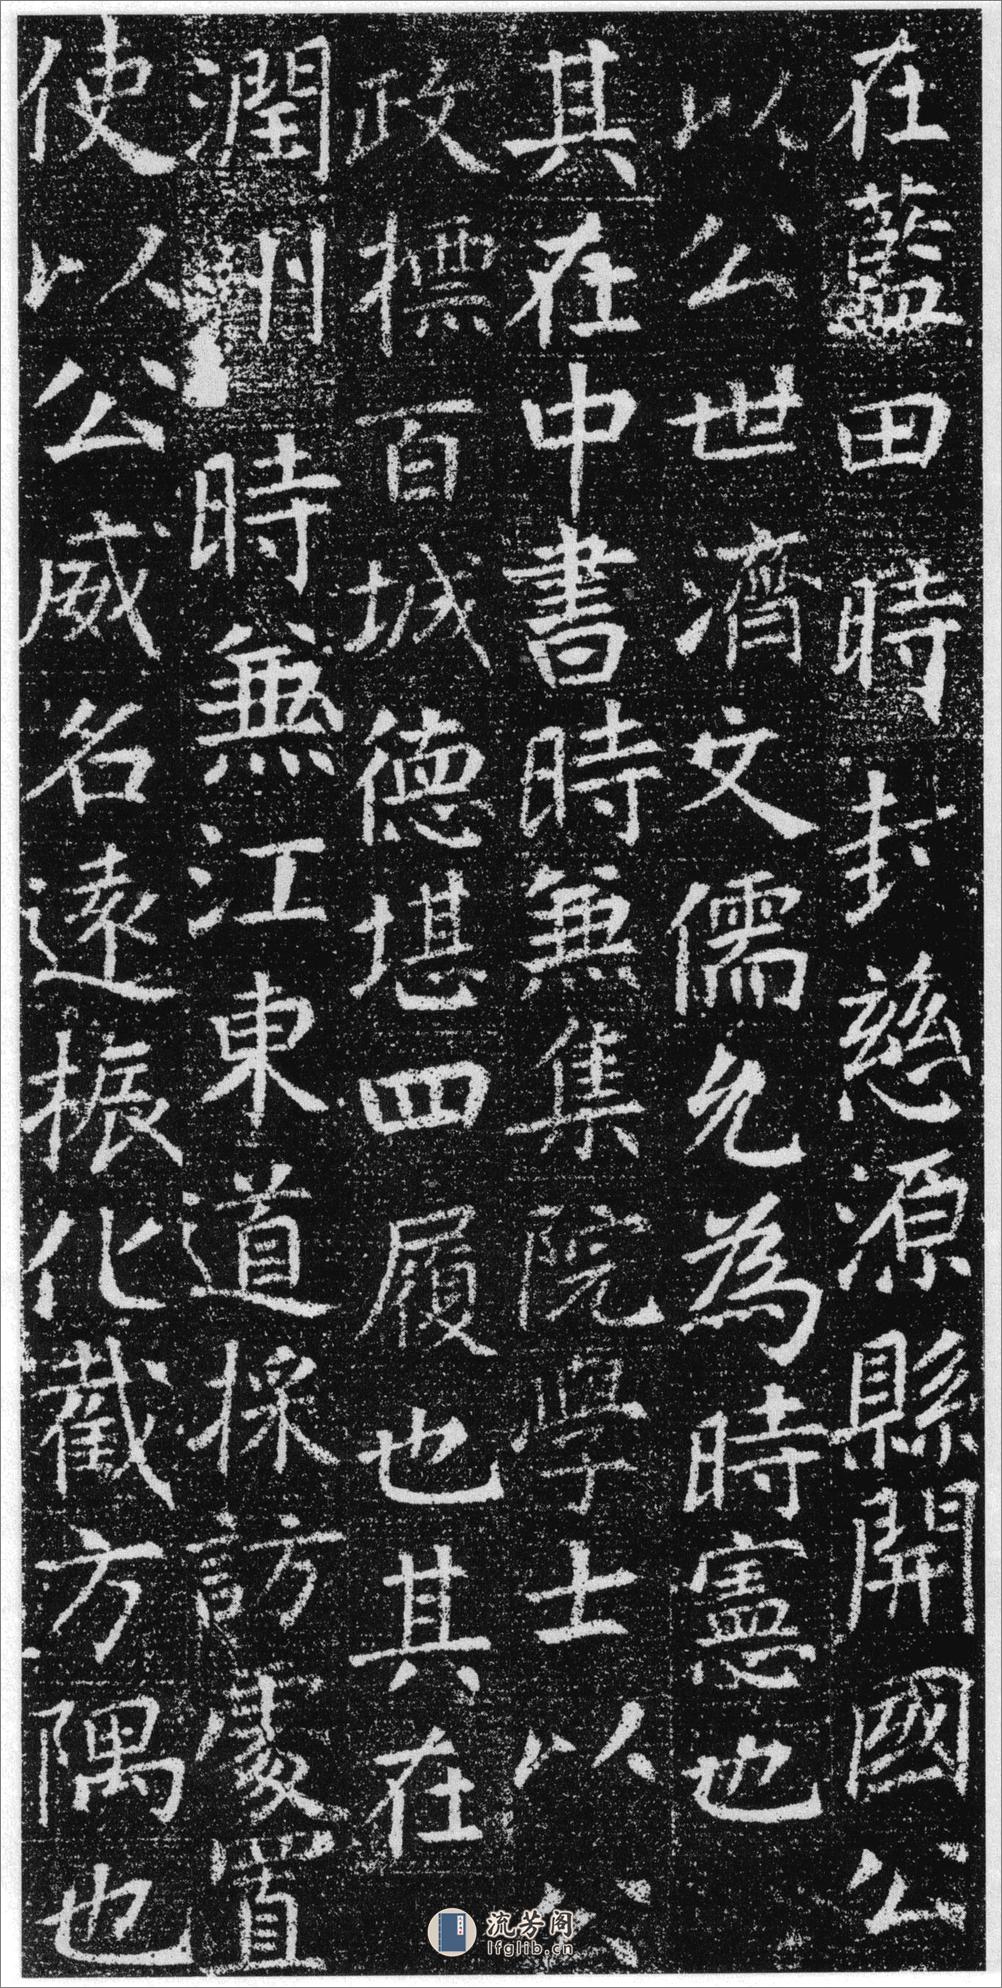 在藍田時封慈源縣開國公
以公世濟文儒允為時憲也
其在中書時兼集院學士以公
政標百城德堪四履也其在
潤州時兼江東道採訪處置
使以公威名遠振化截方隅也
流芳阁
lfglib.cn